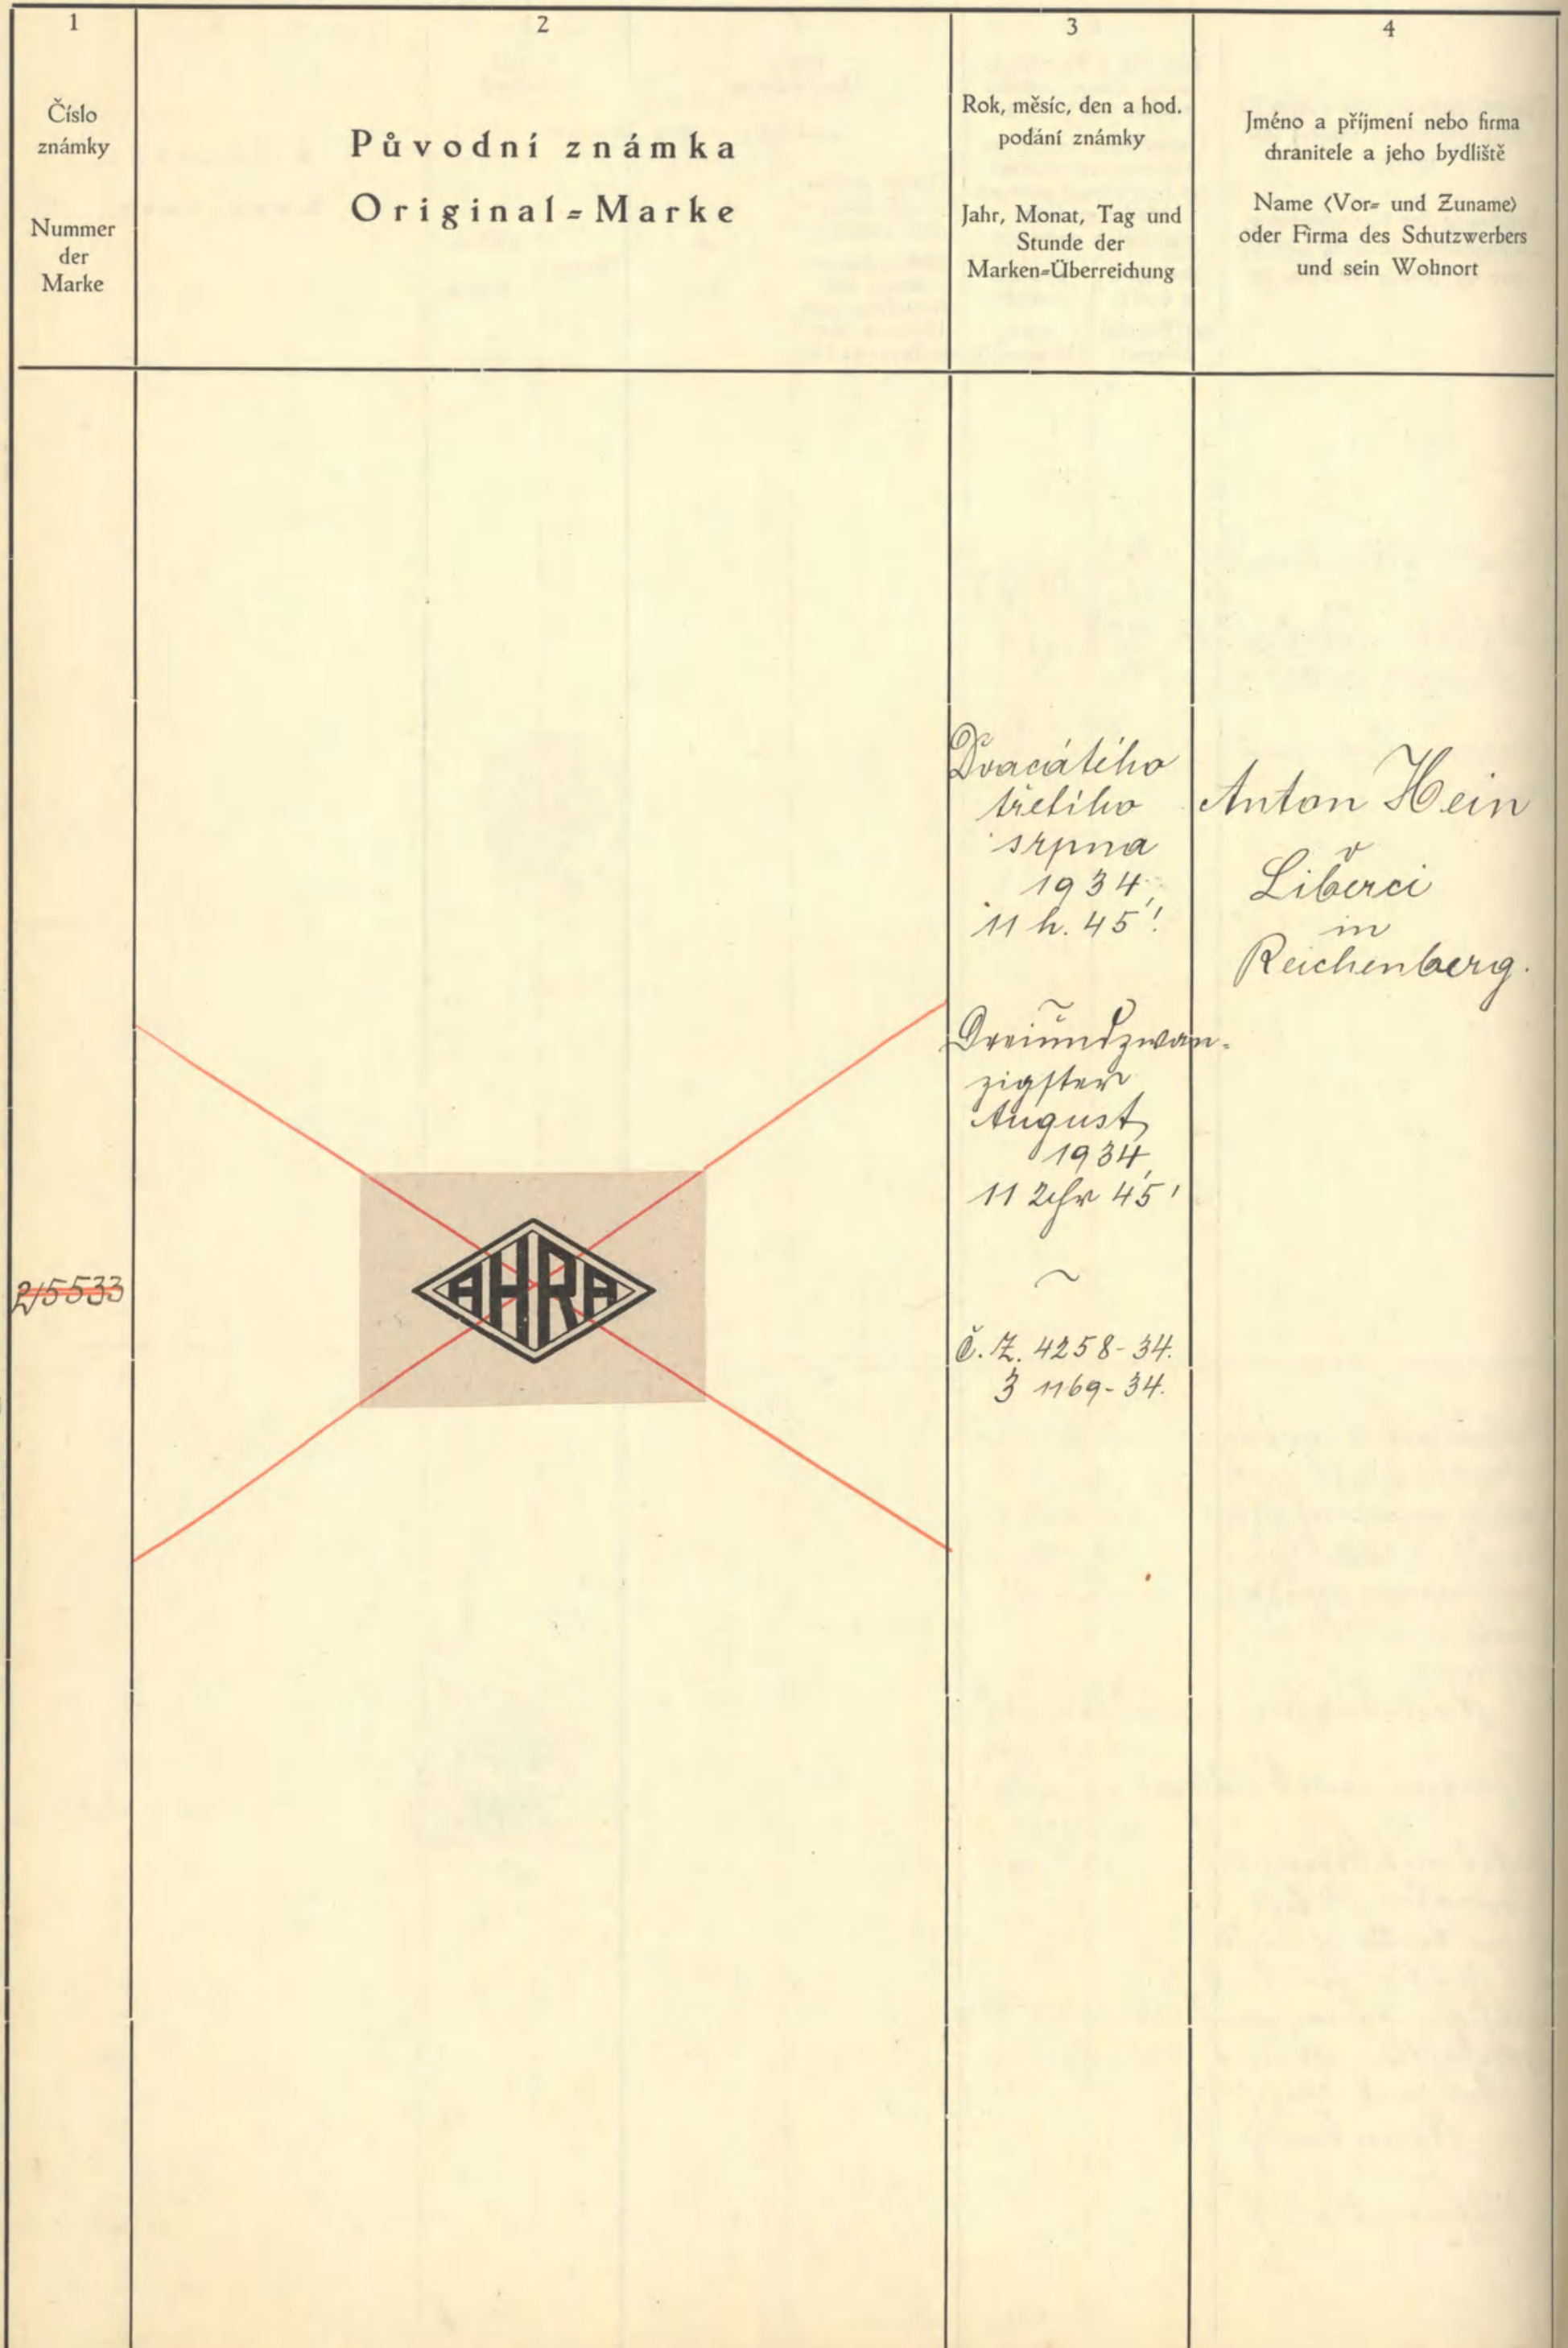 1
Číslo
známky
Nummer
der
Marke
2
Původní známka
Original=Marke
3
Rok, měsíc, den a hod.
podání známky
Jahr, Monat, Tag und
Stunde der
Marken=Überreichung
4
Jméno a příjmení nebo firma
chranitele a jeho bydliště
Name (Vor= und Zuname)
oder Firma des Schutzwerbers
und sein Wohnort
215533
AHRA
Dvacátého
třetího
srpna
1934,
11 h. 45'.
Dreiundzwan-
zigster
August
1934,
11 Uhr 45'
Č. Z. 4258-34.
3 1169-34.
Anton Hein
v
Liberci
in
Reichenberg.